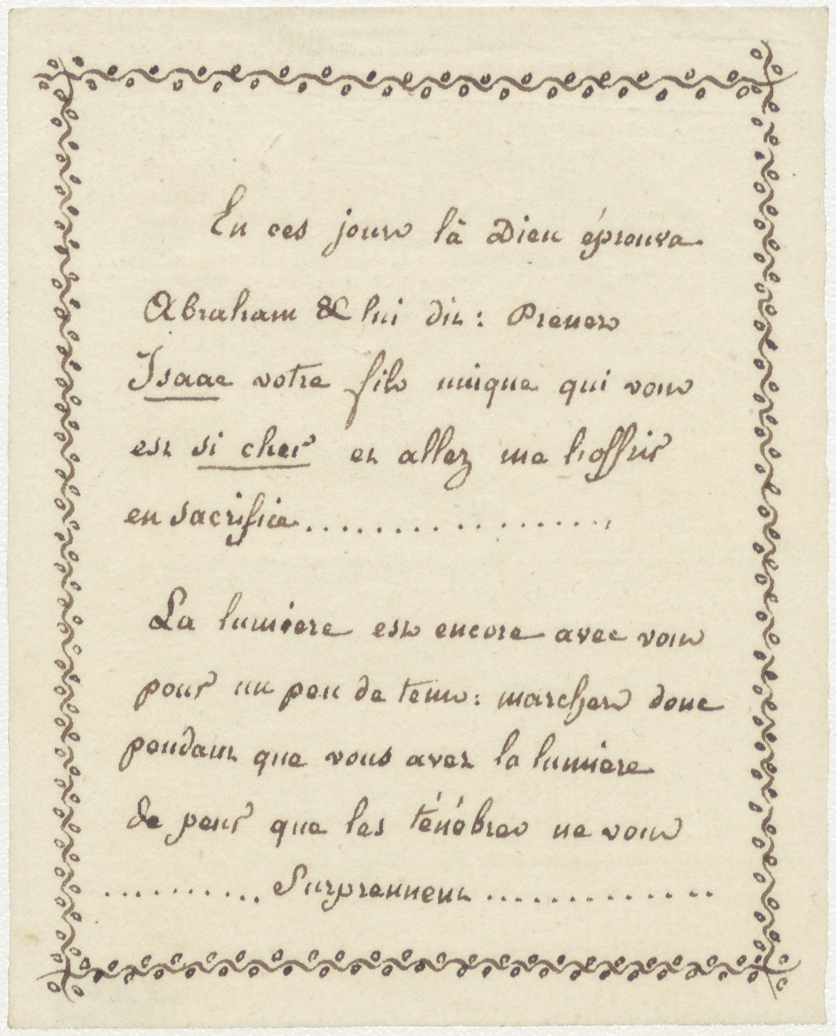 En ces jours là Dieu éprouva
Abraham & lui dit : Prenez
Isaac votre fils unique qui vous
est si cher et allez me l'offrir
en sacrifice..................
La lumiere est encore avec vous
pour un peu de tems : marchez donc
pendant que vous avez la lumiere
de peur que les ténébres ne vous
.......... Surprennent ..............